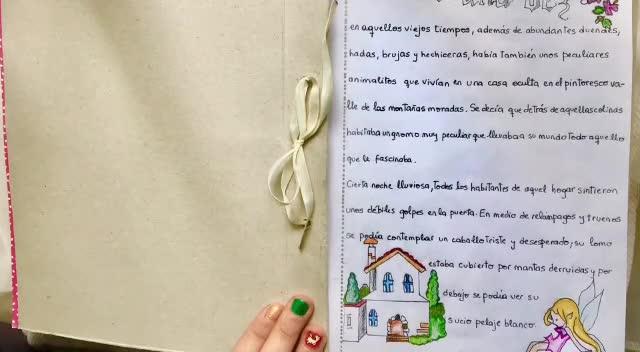 en aquellos viejos tiempos, además de abundantes duendes,
hadas, brujas y hechiceras, había también unos peculiares
animalitos que vivían en una casa oculta en el pintoresco va-
lle de las montañas moradas. Se decía que detrás de aquellas colinas
habitaba un gnomo muy peculiar que llevaba a su mundo todo aquello
que le fascinaba.
Cierta noche lluviosa, todos los habitantes de aquel hogar sintieron
unos débiles golpes en la puerta. En medio de relámpagos y truenos
se podía contemplar un caballo triste y desesperado; su lomo
estaba cubierto por mantas derruidas y por
debajo se podía ver su
sucio pelaje blanco.